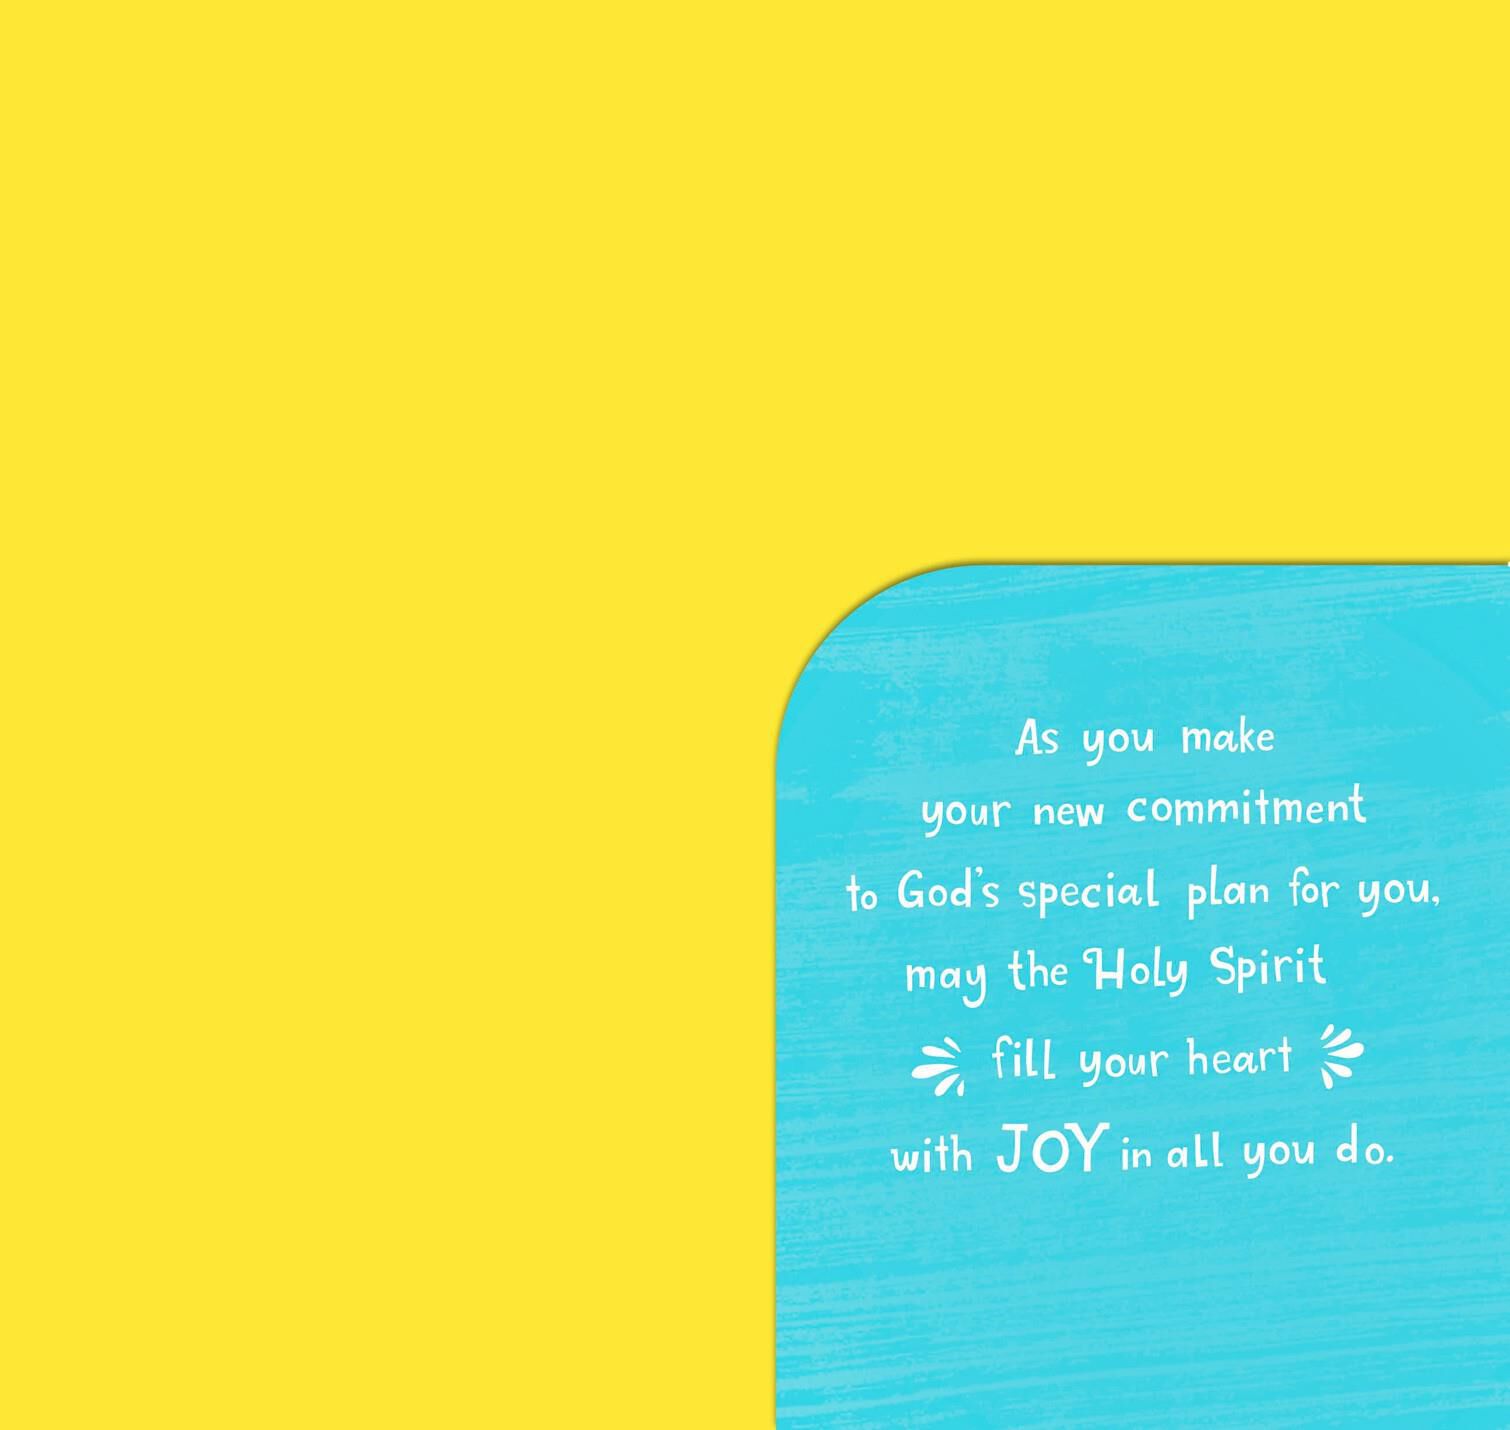 As you make
your new commitment
to God's special plan for you,
may the Holy Spirit
fill your heart
with JOY in all you do.